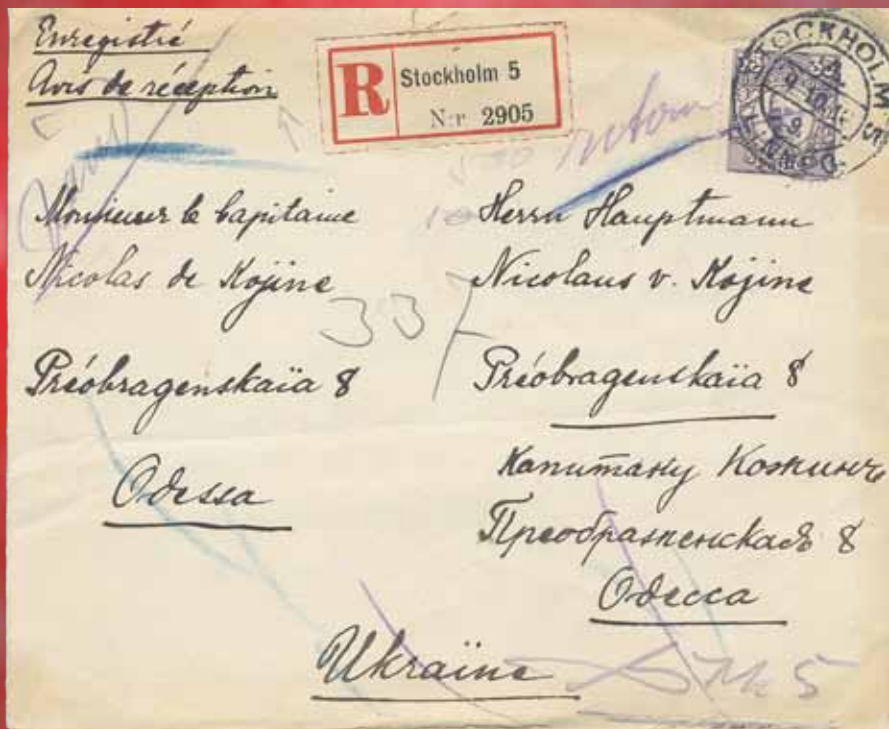 Enregistré
Avis de réception
R
Stockholm 5
N:r 2905
STOCKHOLM
retour
Monsieur le Capitaine
Nicolas de Kojine
Préobragenskaïa 8
Odessa
337
Herrn Hauptmann
Nicolaus v. Kojine
Préobragenskaïa 8
Капитану Кожинъ
Преображенская 8
Одесса
Ukraïne